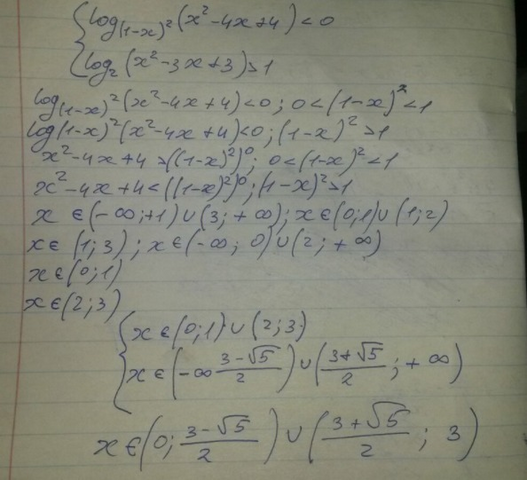 { log_(1-x)² (x² - 4x + 4) < 0
log₂ (x² - 3x + 3) > 1
log_(1-x)² (x² - 4x + 4) < 0 ; 0 < (1-x)² < 1
log(1-x)² (x² - 4x + 4) < 0 ; (1-x)² > 1
x² - 4x + 4 > ((1-x)²)⁰ ; 0 < (1-x)² < 1
x² - 4x + 4 < ((1-x)²)⁰ ; (1-x)² > 1
x ∈ (-∞; +1) ∪ (3; +∞) ; x ∈ (0; 1) ∪ (1; 2)
x ∈ (1; 3) ; x ∈ (-∞; 0) ∪ (2; +∞)
x ∈ (0; 1)
x ∈ (2; 3)
{ x ∈ (0; 1) ∪ (2; 3)
x ∈ (-∞ (3-√5)/2) ∪ ((3+√5)/2 ; +∞)
x ∈ (0; (3-√5)/2) ∪ ((3+√5)/2 ; 3)